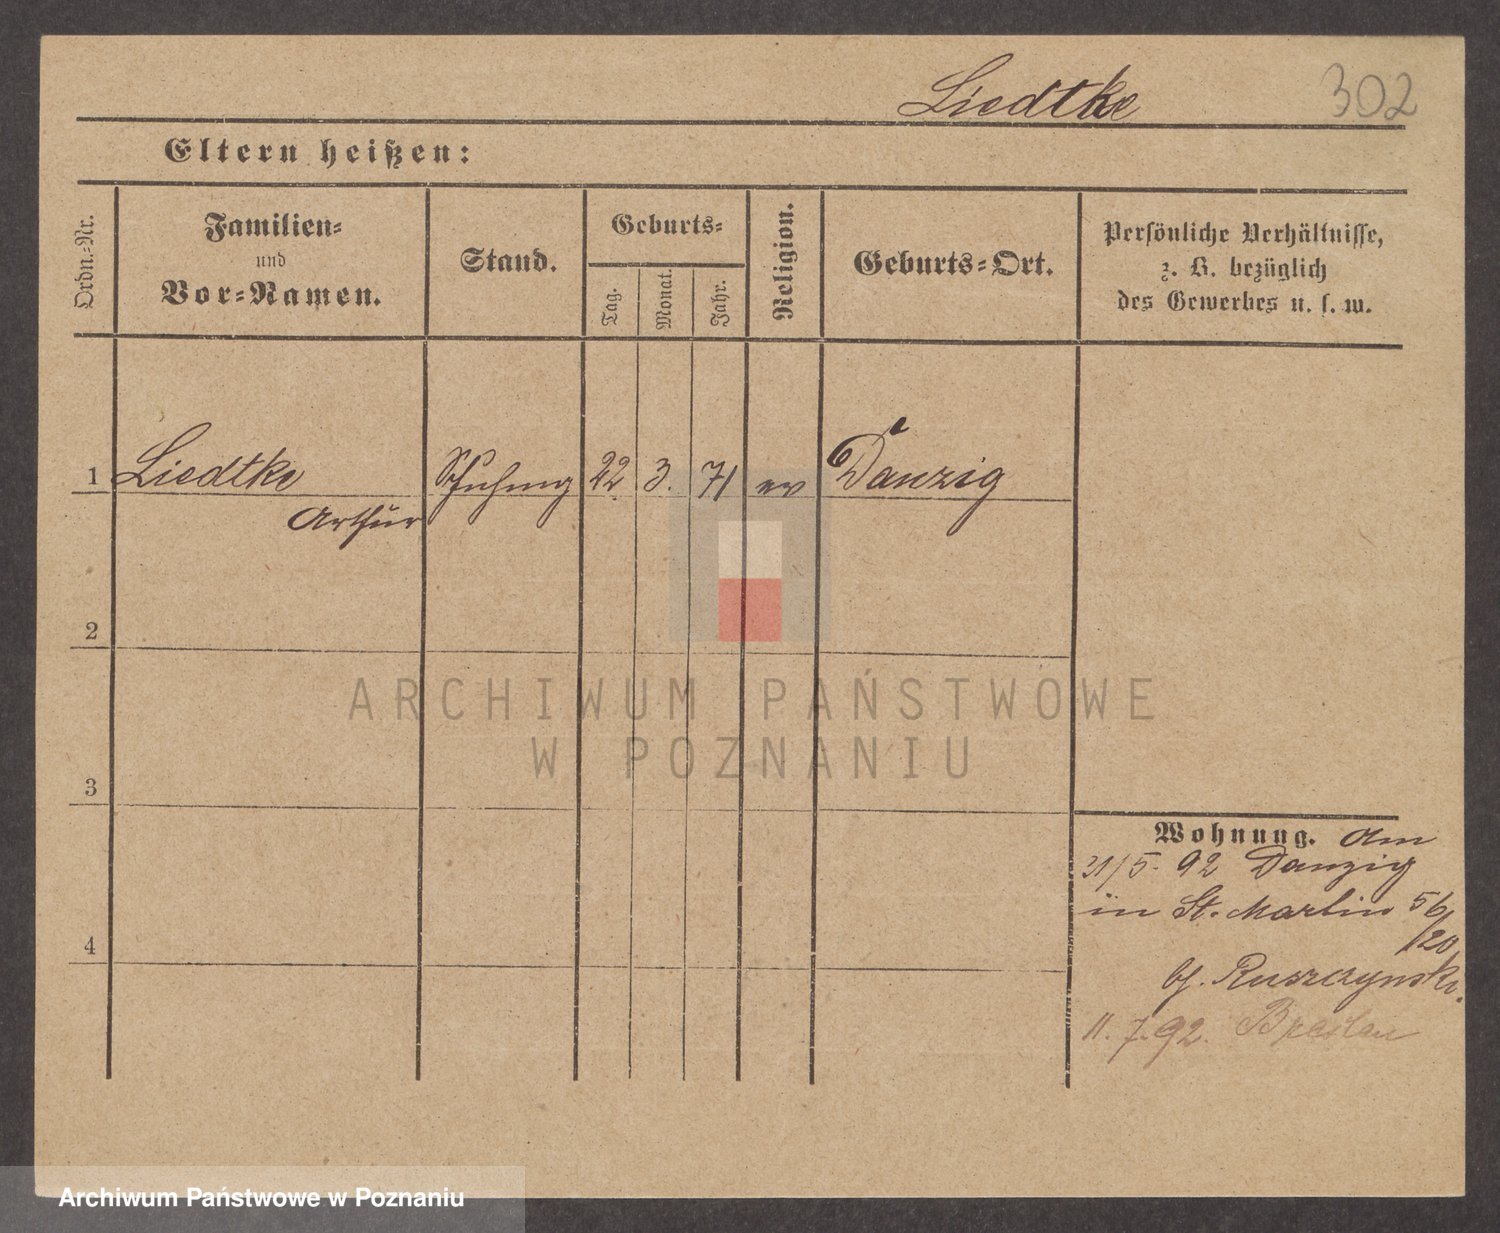 Liedtke 302
Eltern heißen:
Ordn.-Nr.
Familien-
und
Vor-Namen.
Stand.
Geburts-
Tag.
Monat.
Jahr.
Religion.
Geburts-Ort.
Persönliche Verhältnisse,
z. B. bezüglich
des Gewerbes u. s. w.
1 Liedtke 22 3. 71 ev Danzig
Arthur
2
ARCHIWUM PAŃSTWOWE
W POZNANIU
3
Wohnung. Am
31/5. 92 Danzig
in St. Martin 56
/20
4
bf. Ruszczynski.
11. 7. 92. Breslau
Archiwum Państwowe w Poznaniu